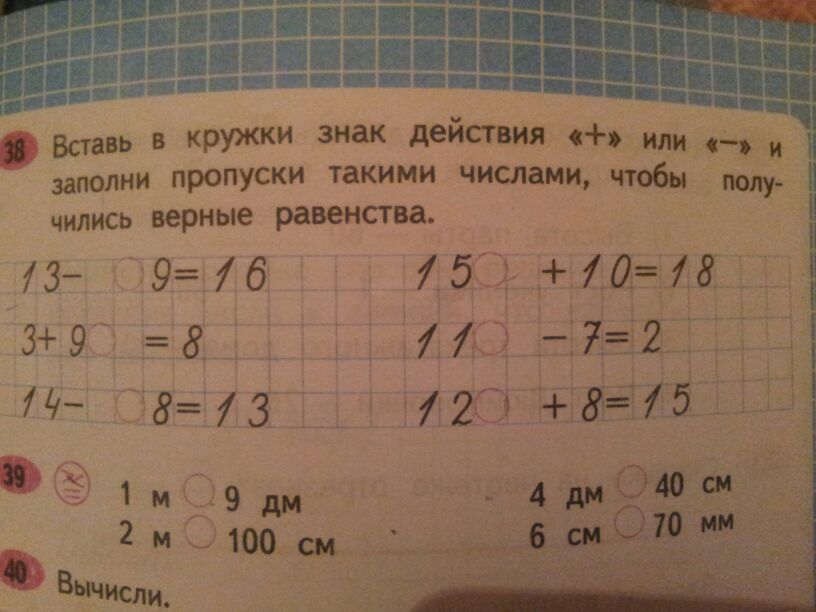 38 Вставь в кружки знак действия «+» или «−» и
заполни пропуски такими числами, чтобы полу-
чились верные равенства.
13− ○ 9=16 15○ +10=18
3+9○ =8 11○ −7=2
14− ○ 8=13 12○ +8=15
39 1 м ○ 9 дм 4 дм ○ 40 см
2 м ○ 100 см 6 см ○ 70 мм
40 Вычисли.